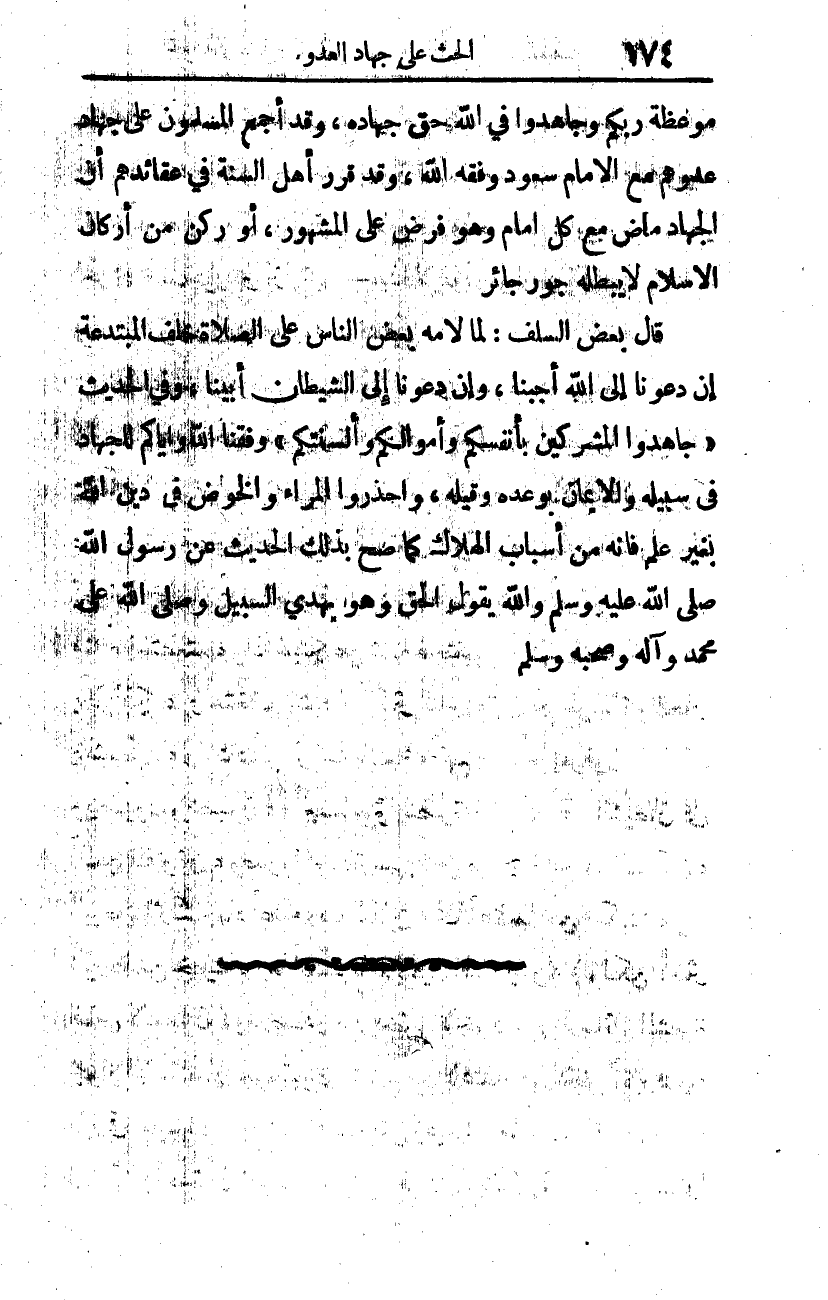 ١٧٤ الحث على جهاد العدو.
موعظة ربكم وجاهدوا في الله حق جهاده ، وقد أجمع المسلمون على جهاد
عدوهم مع الامام سعود وفقه الله ، وقد قرر أهل السنة في عقائدهم أن
الجهاد ماض مع كل امام وهو فرض على المشهور ، أو ركن من أركان
الاسلام لا يبطله جور جائر
قال بعض السلف : لما لامه بعض الناس على الصلاة خلف المبتدعة
إن دعونا إلى الله أجبنا ، وإن دعونا إلى الشيطان أبينا ، وفي الحديث
« جاهدوا المشركين بأنفسكم وأموالكم وألسنتكم » وفقنا الله واياكم للجهاد
في سبيله والايمان بوعده وقيله ، واحذروا المراء والخوض في دين الله
بغير علم فانه من أسباب الهلاك كما صح بذلك الحديث عن رسول الله
صلى الله عليه وسلم والله يقول الحق وهو يهدي السبيل وصلى الله على
محمد وآله وصحبه وسلم